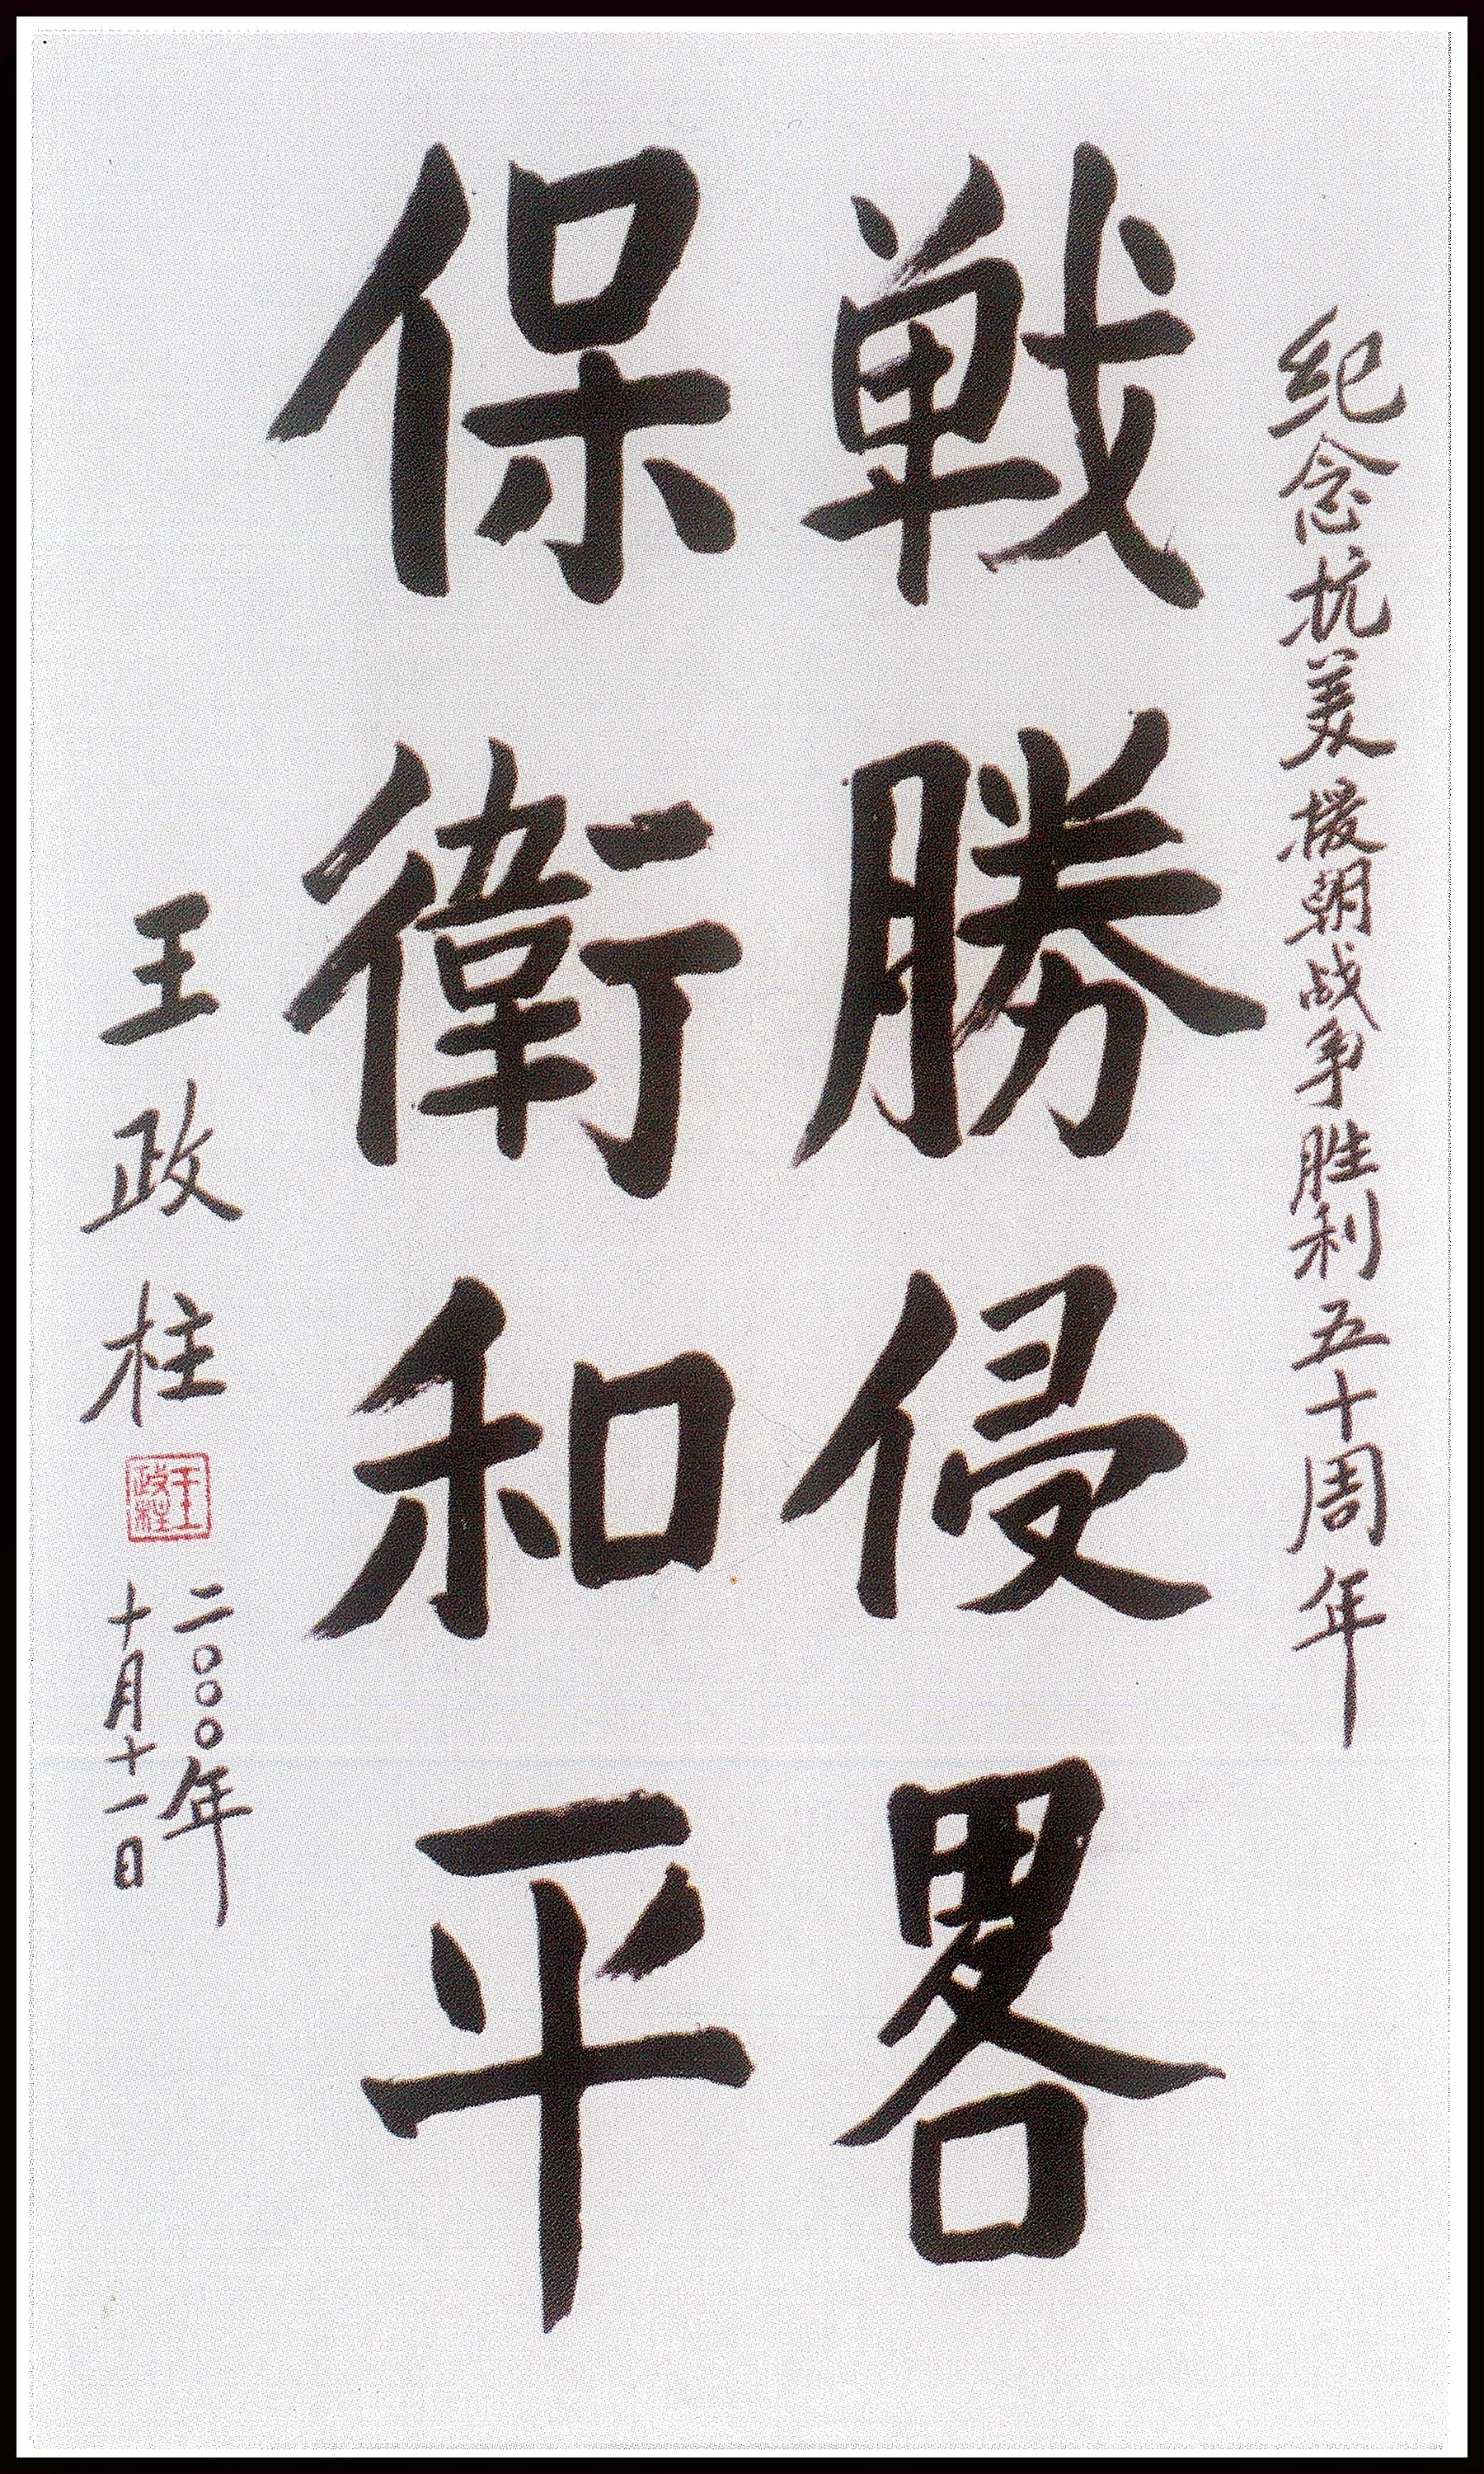 纪念抗美援朝战争胜利五十周年
戦勝侵畧
保衛和平
王政柱
王政柱
二〇〇〇年
十月十一日